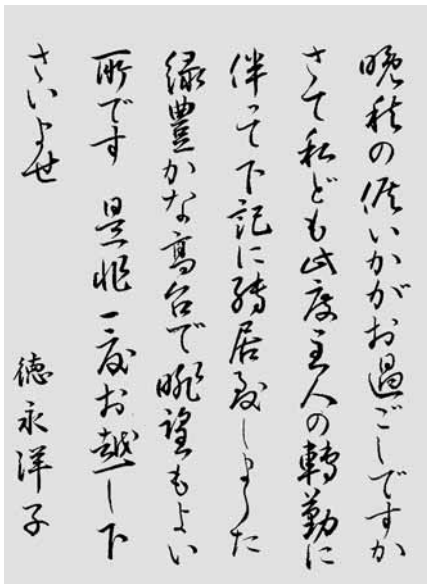 晩秋の候いかがお過ごしですか
さて私ども此度主人の轉勤に
伴って下記に轉居致しました
緑豊かな高台で眺望もよい
所です 是非一度お越し下
さいませ
徳永洋子